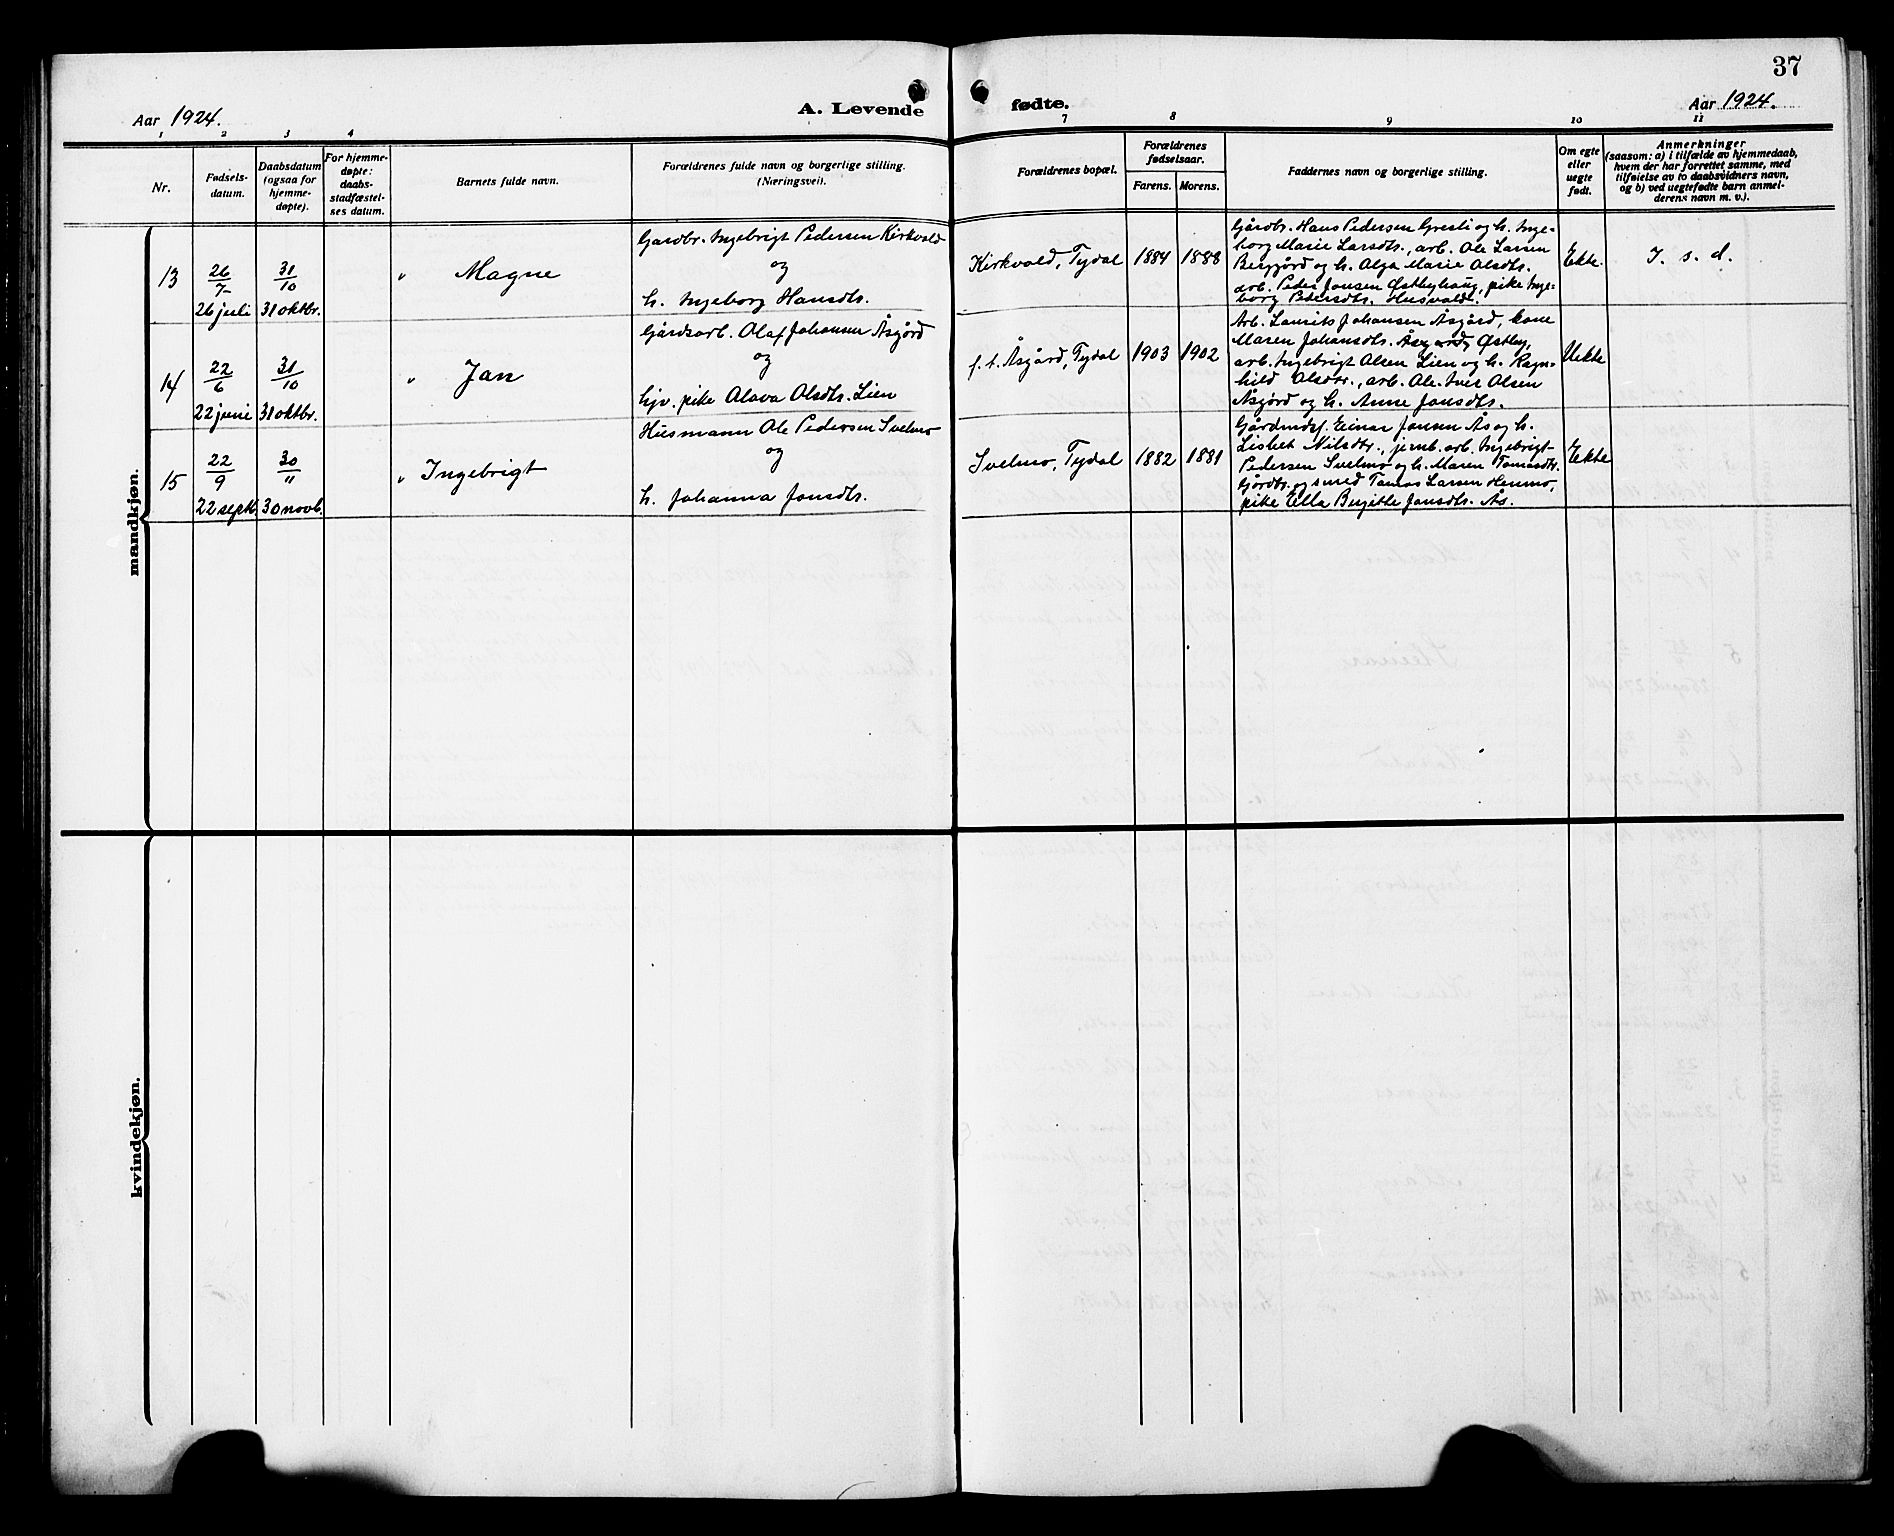 37
Aar 1924.
A. Levende fødte.
Aar 1924.
1 2 3 4 7 8 9 10 11
Nr.
Fødsels-
datum.
Daabsdatum
(ogsaa for
hjemme-
døpte).
For hjemme-
døpte:
daabs-
stadfæstel-
ses datum.
Barnets fulde navn.
Forældrenes fulde navn og borgerlige stilling.
(Næringsvei).
Forældrenes bopæl.
Forældrenes
fødselsaar.
Farens. Morens.
Faddernes navn og borgerlige stilling.
Om egte
eller
uegte
født.
Anmerkninger
(saasom: a) i tilfælde av hjemmedaab,
hvem der har forrettet samme, med
tilføielse av to daabsvidners navn,
og b) ved uegtefødte barn anmel-
derens navn m. v.).
mandkjøn.
13
26/7
26 juli
31/10
31 oktbr.
" Magne
Gardbr. Ingebrigt Pedersen Kirkvold
og
h. Ingeborg Hansdtr.
Kirkvold, Tydal
1884
1888
Gårdbr. Hans Pedersen Gresli og h. Inge-
borg Marie Larsdtr., arb. Ole Larsen
Berggård og h. Olga Marie Olsdtr.
arb. Peder Jonsen Østbyhaug, pike Inge-
borg Pedersdtr. Husvold.
Ekte.
I. s. d.
14
22/6
22 juni
31/10
31 oktbr.
" Jan
Gårdsarb. Olaf Johansen Åsgård
og
hjv. pike Olava Olsdtr. Lien
f. t. Åsgård, Tydal
1903
1902
Arb. Laurits Johansen Åsgård, kone
Maren Johansdtr. Østby,
arb. Ingebrigt Olsen Lien og h. Ragn-
hild Olsdtr., arb. Ole Iver Olsen
Åsgård og h. Anne Jonsdtr.
Uekte
15
22/9
22 septb.
30/11
30 novb.
" Ingebrigt
Husmann Ole Pedersen Svelmo
og
h. Johanna Jonsdtr.
Svelmo, Tydal
1882
1881
Gårdmdsf. Einar Jonsen Ås og h.
Lisbet Nilsdtr., jernb. arb. Ingebrigt
Pedersen Svelmo og h. Maren Tomasdtr.
Gårdbr. og smed Tomas Larsen Henmo,
pike Ella Birgitte Jonsdtr. Ås.
Ekte
kvindekjøn.